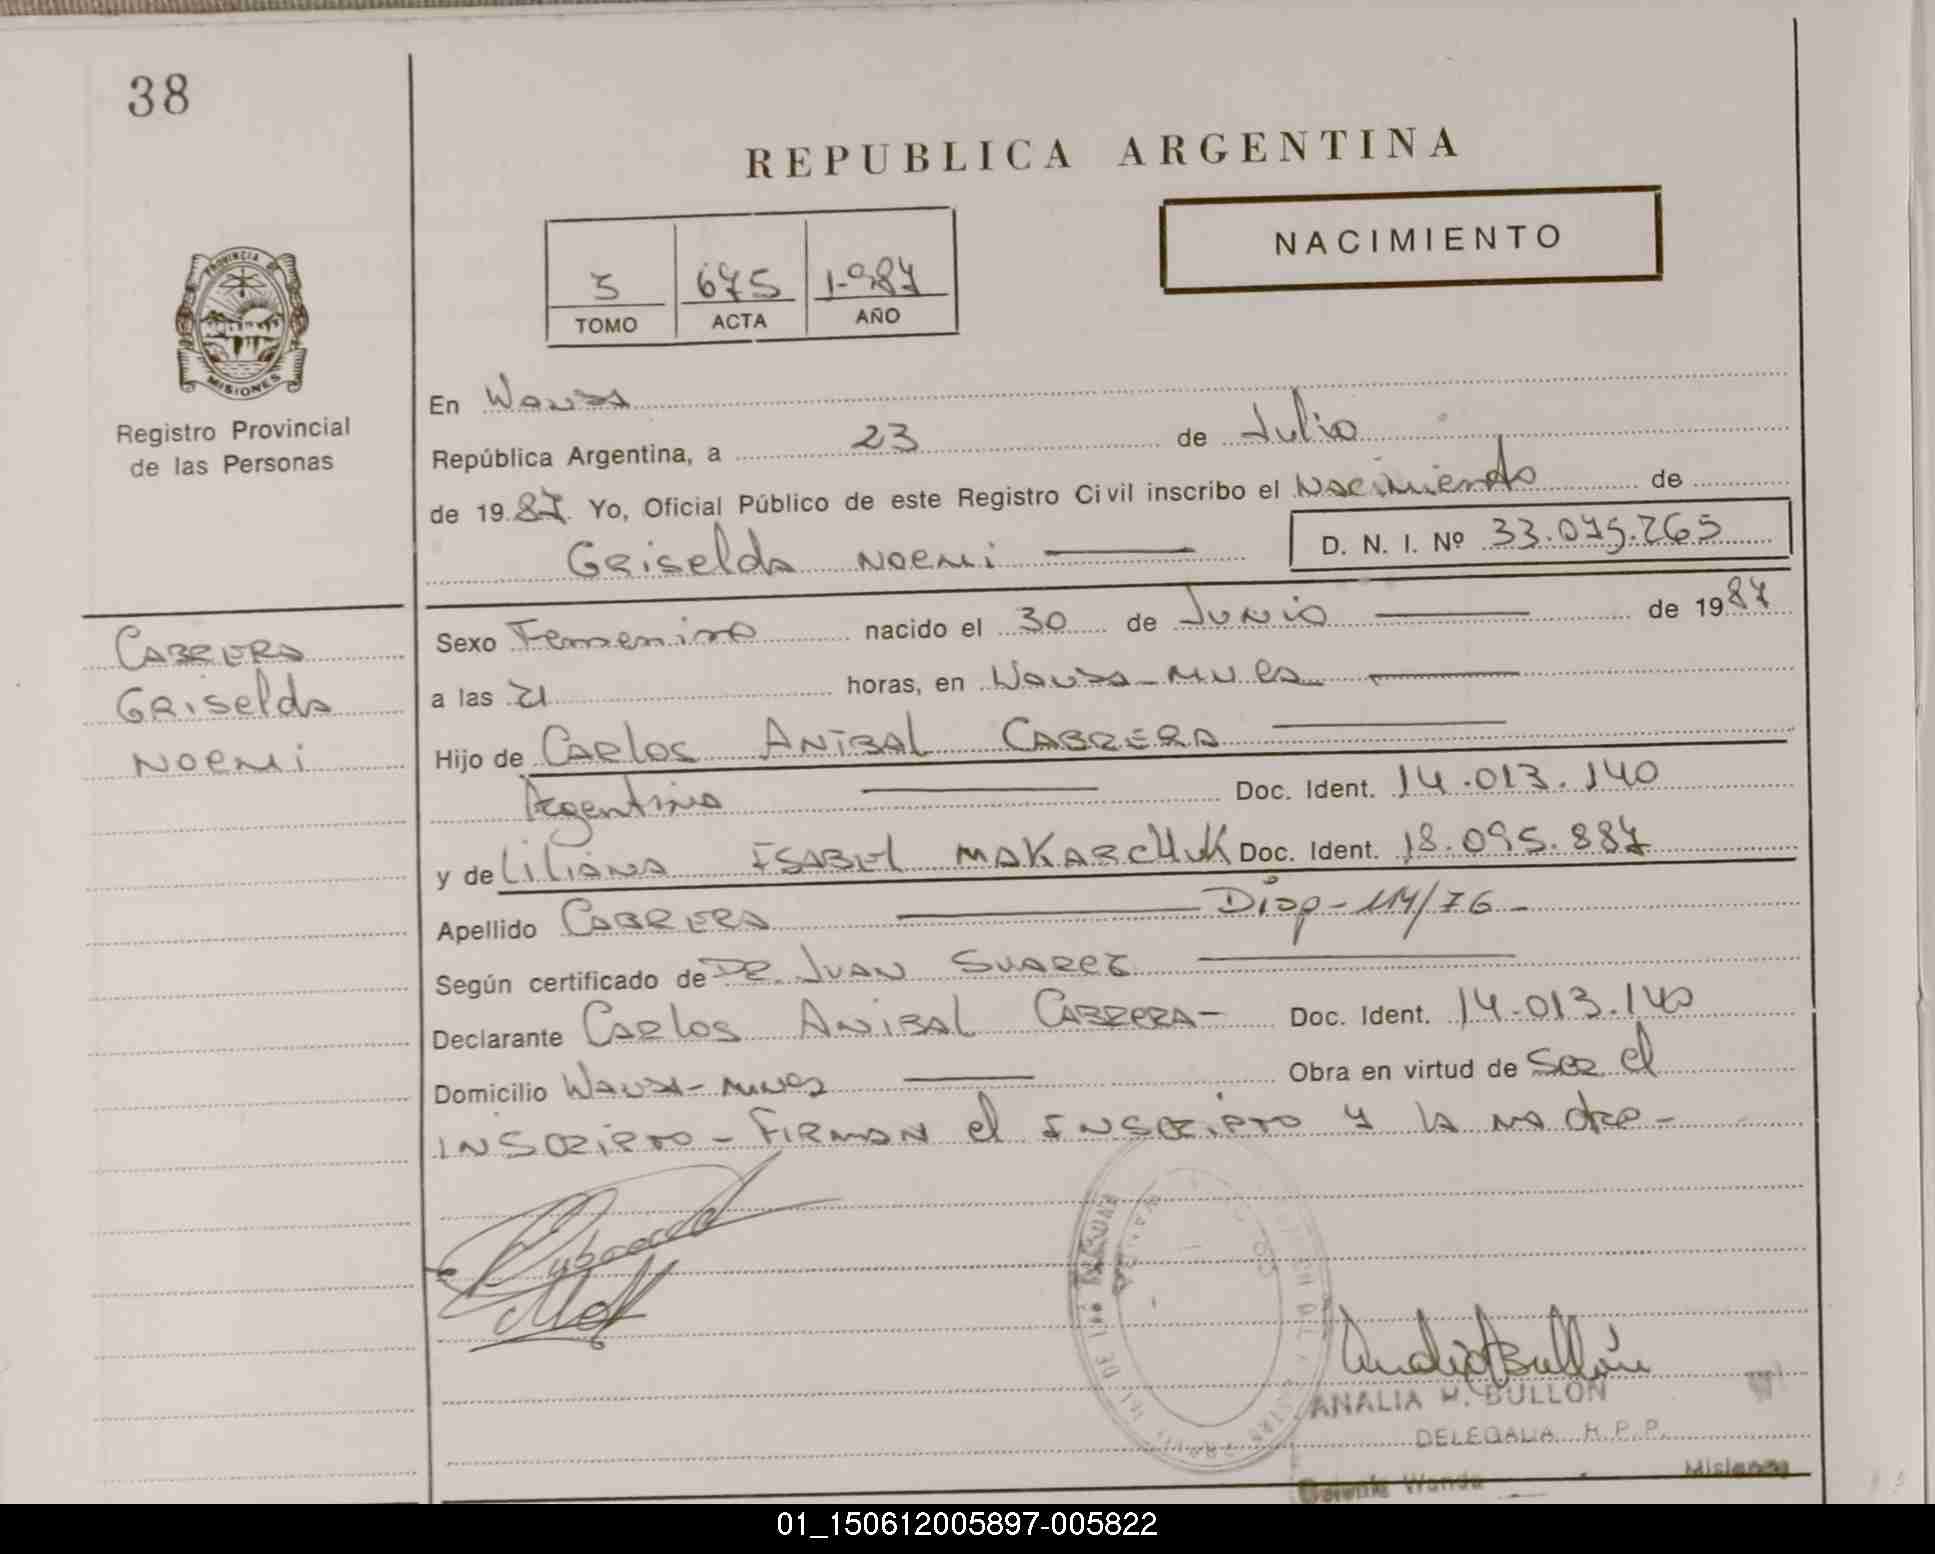 38
REPUBLICA ARGENTINA
NACIMIENTO
5 675 1.987
TOMO ACTA AÑO
PROVINCIA DE
MISIONES
Registro Provincial
de las Personas
En Wanda
República Argentina, a 23 de Julio
de 1987. Yo, Oficial Público de este Registro Civil inscribo el Nacimiento de
Griselda Noemi D. N. I. Nº 33.075.265
Sexo Femenino nacido el 30 de Junio de 1987
a las 21 horas, en Wanda-Mnes
Hijo de Carlos Anibal Cabrera
Argentino Doc. Ident. 14.013.140
y de Liliana Isabel Makarchuk Doc. Ident. 18.095.887
Apellido Cabrera Disp-114/76-
Según certificado de Dr. Juan Suarez
Declarante Carlos Anibal Cabrera- Doc. Ident. 14.013.140
Domicilio Wanda-Mnes Obra en virtud de Ser el
inscripto-Firman el Inscripto y la madre-
Cabrera
Griselda
Noemi
ANALIA H. BULLON
DELEGADA R.P.P.
Colonia Wanda Misiones
01_150612005897-005822